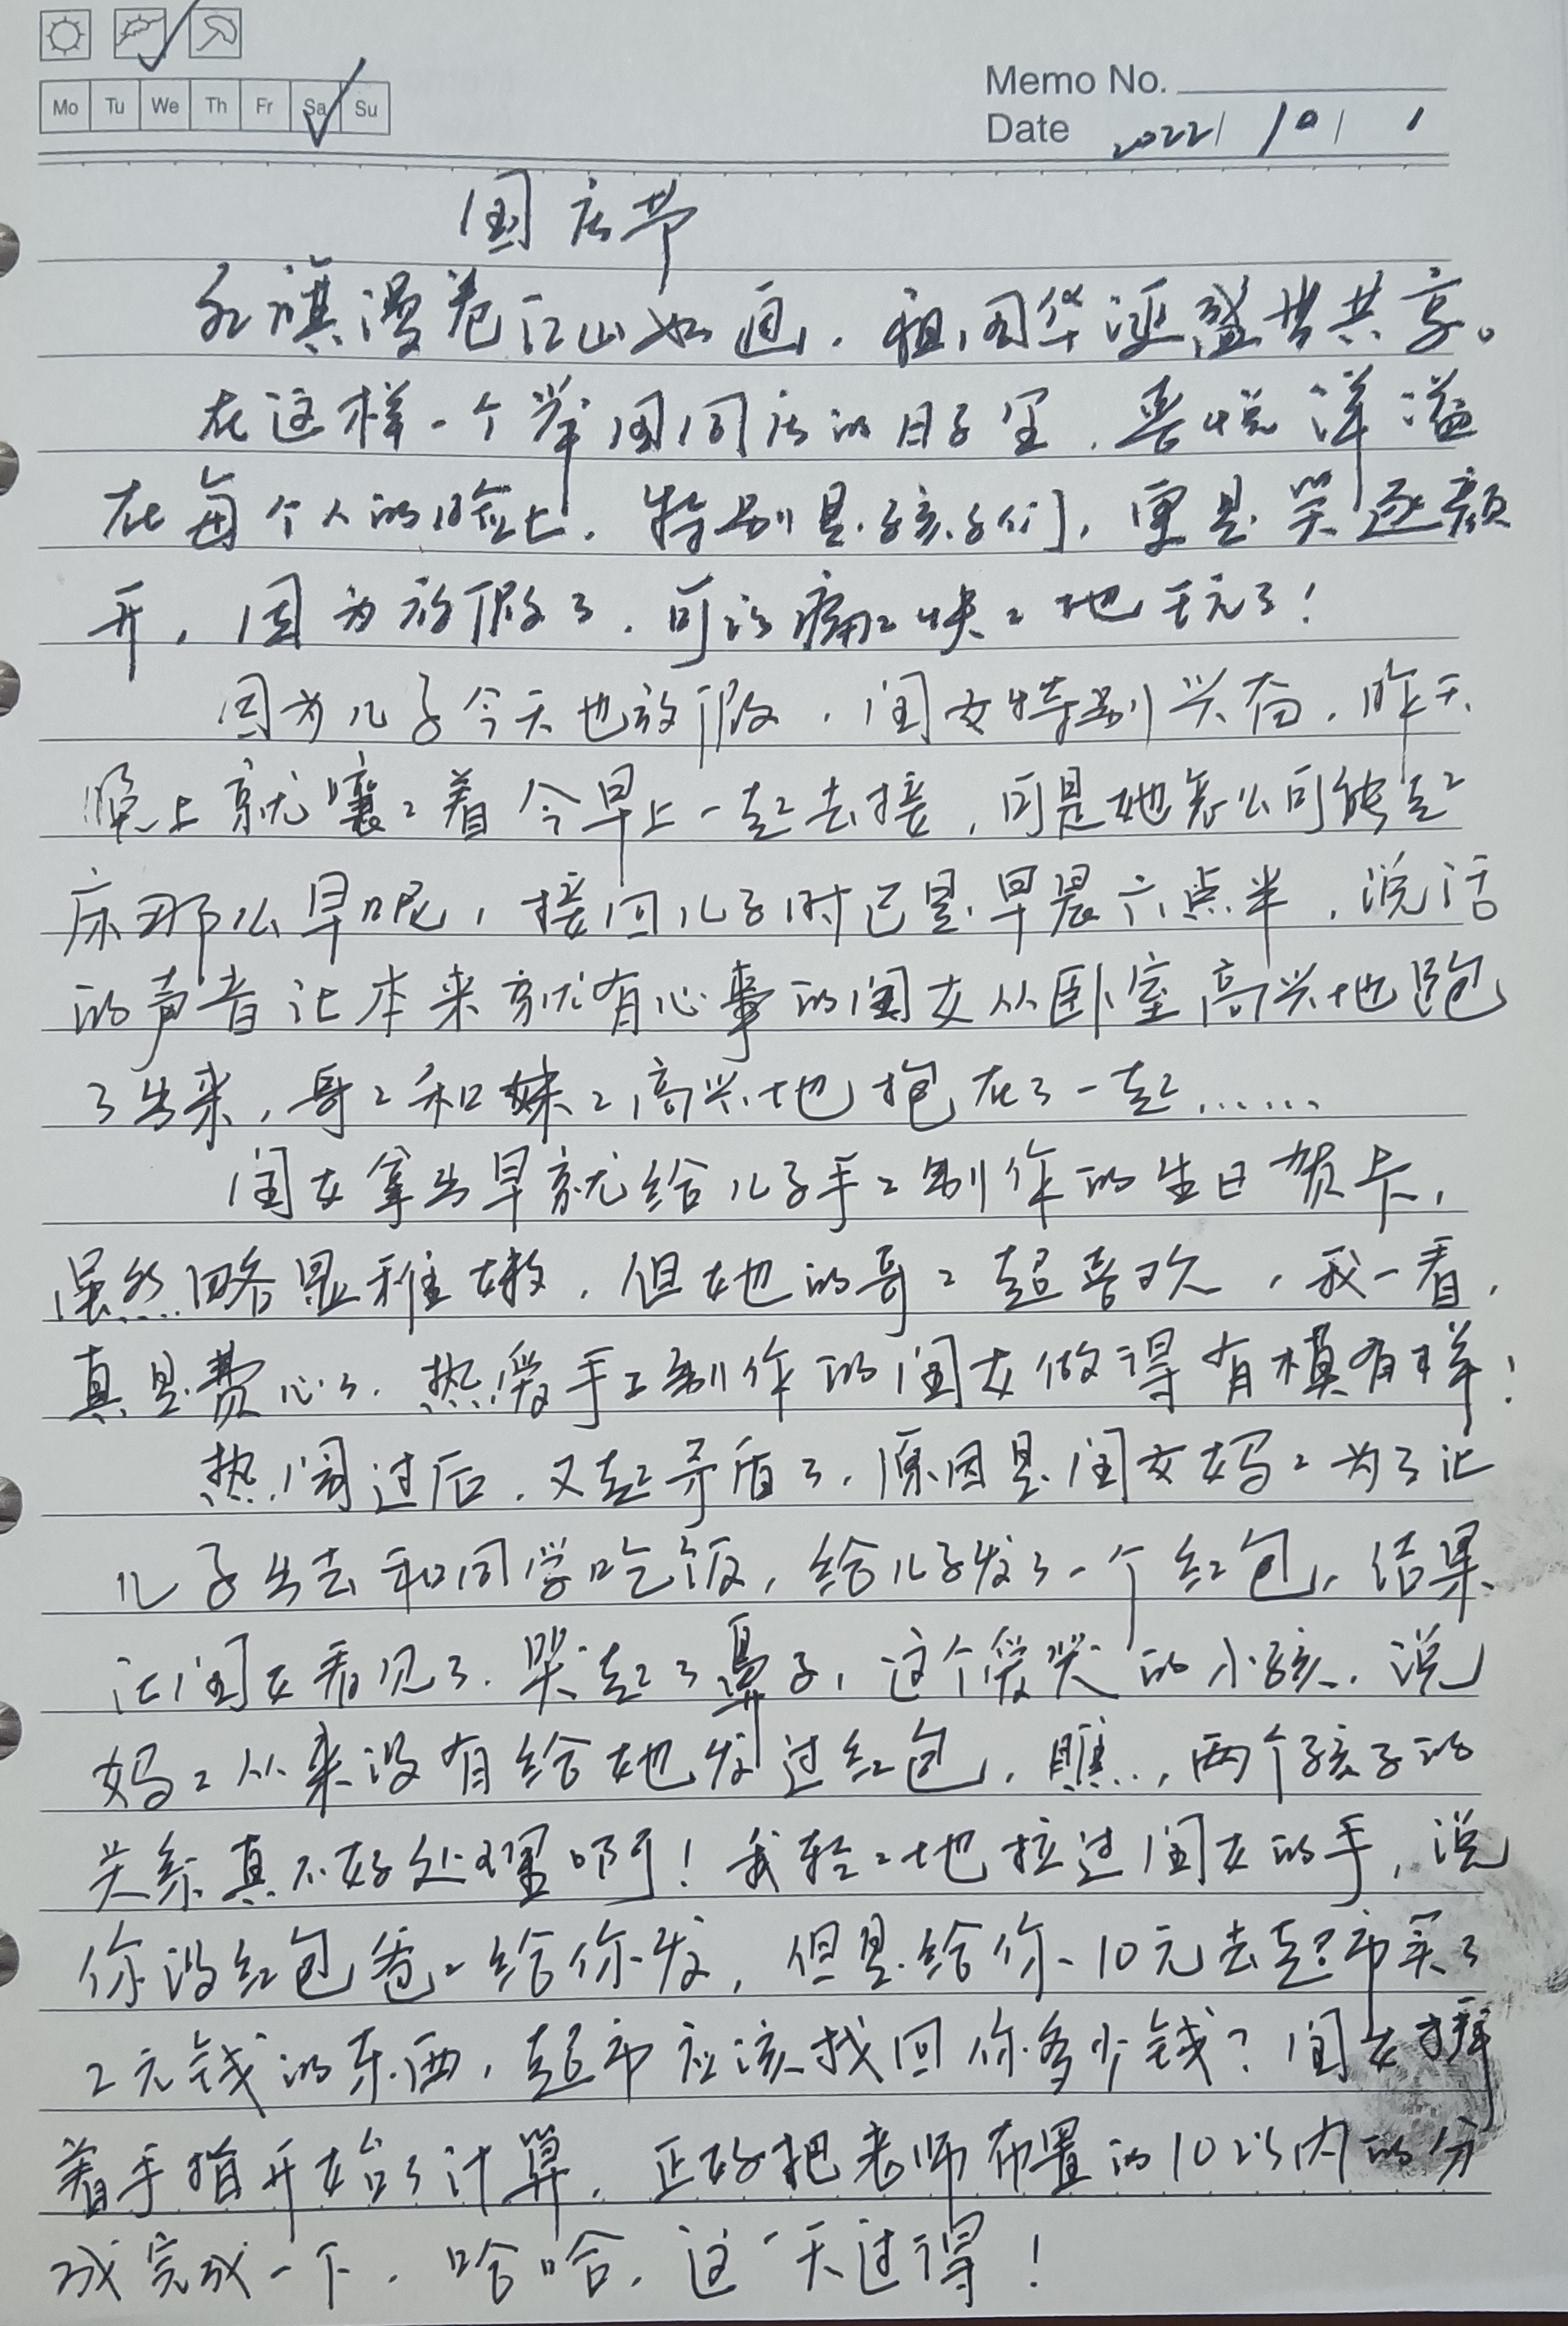 Mo Tu We Th Fr Sa Su
Memo No.
Date 2022/10/1
国庆节
红旗漫卷江山如画，祖国华诞盛世共享。
在这样一个举国同庆的日子里，喜悦洋溢
在每个人的脸上，特别是孩子们，更是笑逐颜
开，因为放假了，可以痛痛快快地玩了！
因为儿子今天也放假，闺女特别兴奋，昨天
晚上就嚷嚷着今早上一起去接，可是她怎么可能起
床那么早呢，接回儿子时已是早晨六点半，说话
的声音让本来就有心事的闺女从卧室高兴地跑
了出来，哥哥和妹妹高兴地抱在了一起……
闺女拿出早就给儿子手工制作的生日贺卡，
虽然略显稚嫩，但她的哥哥超喜欢，我一看，
真是费心了，热爱手工制作的闺女做得有模有样！
热闹过后，又起矛盾了，原因是闺女妈妈为了让
儿子出去和同学吃饭，给儿子发了一个红包，结果
让闺女看见了，哭起了鼻子，这个爱哭的小孩，说
妈妈从来没有给她发过红包，瞧，两个孩子的
关系真不好处理啊！我轻轻地拉过闺女的手，说
你没红包爸爸给你发，但是给你10元去超市买了
2元钱的东西，超市应该找回你多少钱？闺女掰
着手指开始了计算，正好把老师布置的10以内的分
成完成一下，哈哈，这一天过得！